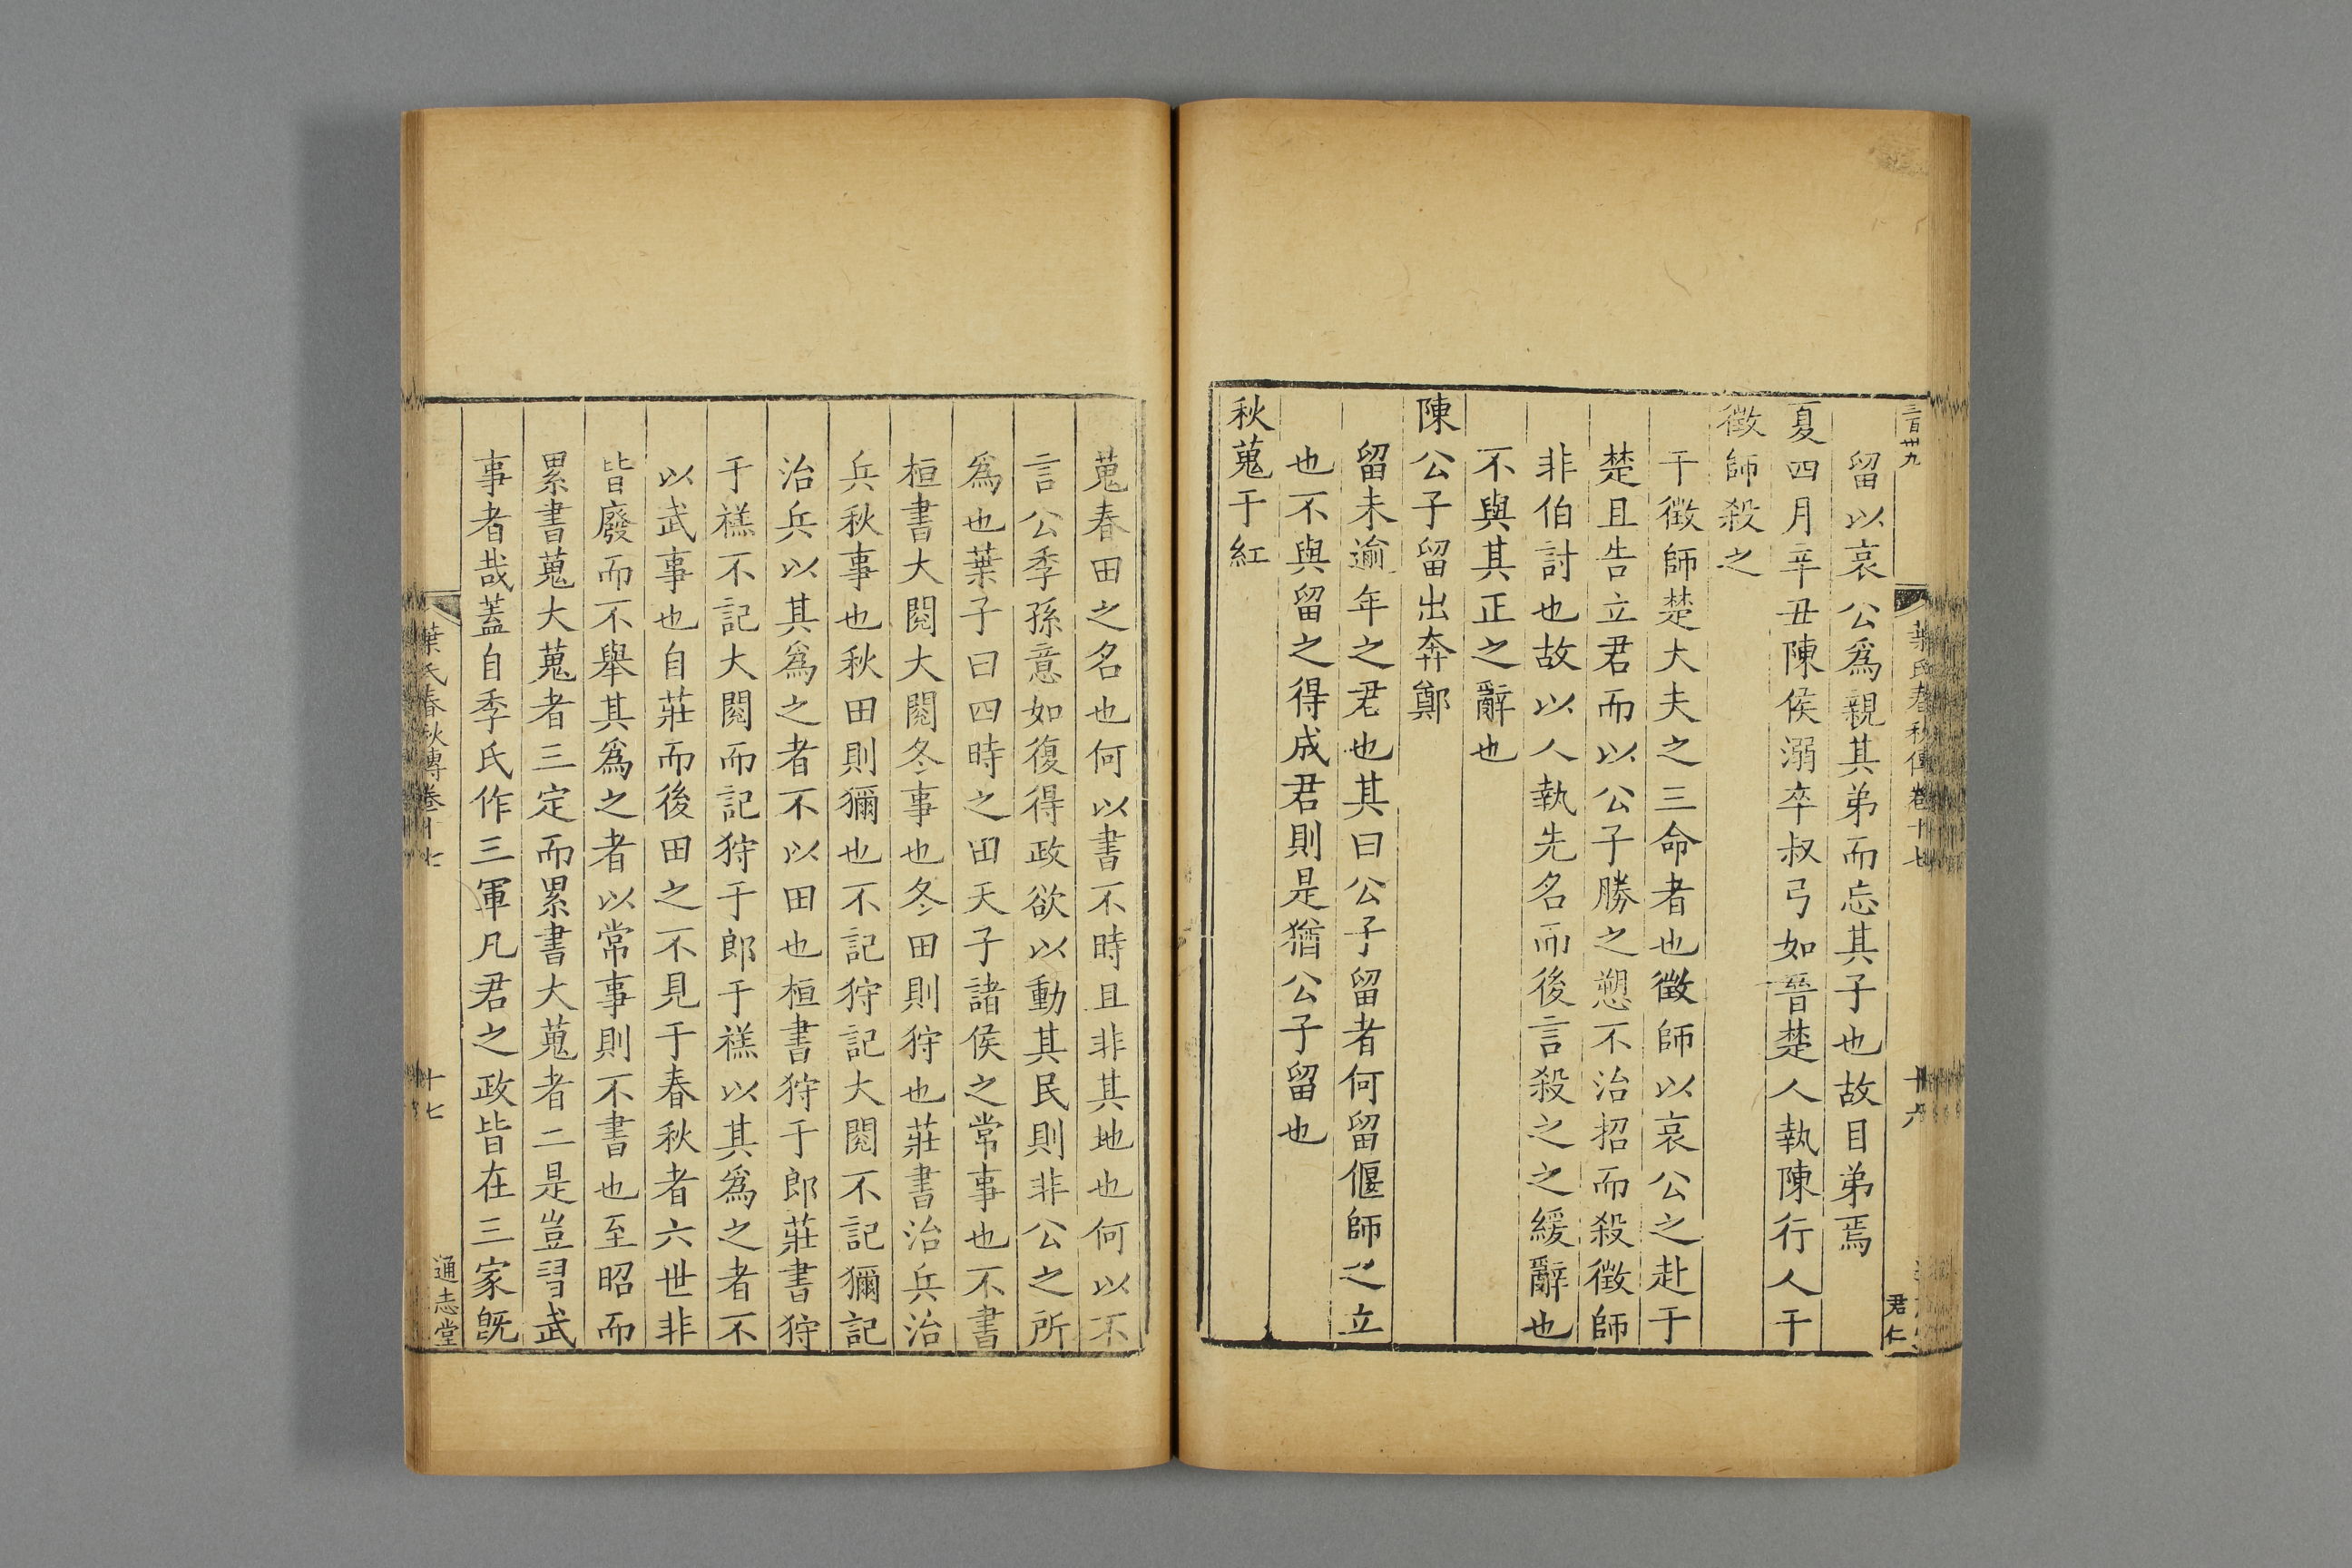 三百卅九
葉氏春秋傳卷十七
十六
君仁
留以哀公爲親其弟而忘其子也故目弟焉
夏四月辛丑陳侯溺卒叔弓如晉楚人執陳行人干
徵師殺之
干徵師楚大夫之三命者也徵師以哀公之赴于
楚且告立君而以公子勝之愬不治招而殺徵師
非伯討也故以人執先名而後言殺之之緩辭也
不與其正之辭也
陳公子留出奔鄭
留未逾年之君也其曰公子留者何留偃師之立
也不與留之得成君則是猶公子留也
秋蒐于紅
蒐春田之名也何以書不時且非其地也何以不
言公季孫意如復得政欲以動其民則非公之所
爲也葉子曰四時之田天子諸侯之常事也不書
桓書大閱大閱冬事也冬田則狩也莊書治兵治
兵秋事也秋田則獮也不記狩記大閱不記獮記
治兵以其爲之者不以田也桓書狩于郎莊書狩
于禚不記大閱而記狩于郎于禚以其爲之者不
以武事也自莊而後田之不見于春秋者六世非
皆廢而不舉其爲之者以常事則不書也至昭而
累書蒐大蒐者三定而累書大蒐者二是豈習武
事者哉蓋自季氏作三軍凡君之政皆在三家旣
葉氏春秋傳卷十七
十七
通志堂